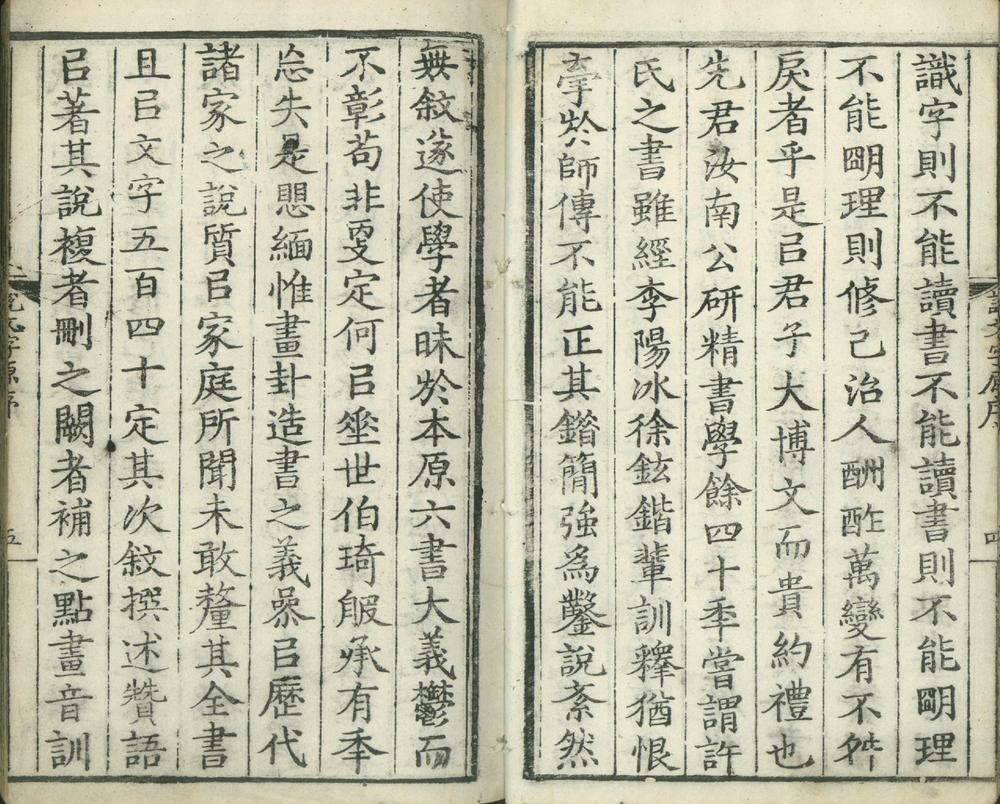 識字則不能讀書不能讀書則不能朙理
不能朙理則修己治人酬酢萬變有不舛
戾者乎是㠯君子大博文而貴約禮也
先君汝南公研精書學餘四十秊嘗謂許
氏之書雖經李陽冰徐鉉鍇輩訓釋猶恨
牽於師傳不能正其鍇簡強爲鑿說紊然
無敘遂使學者昧於本原六書大義鬱而
不彰苟非㪅定何㠯垂世伯琦服承有秊
忘失是懇緬惟畫卦造書之義參㠯歷代
諸家之說質㠯家庭所聞未敢釐其全書
且㠯文字五百四十定其次敘撰述贊語
㠯著其說複者刪之闕者補之點畫音訓
說文字原序
四
五